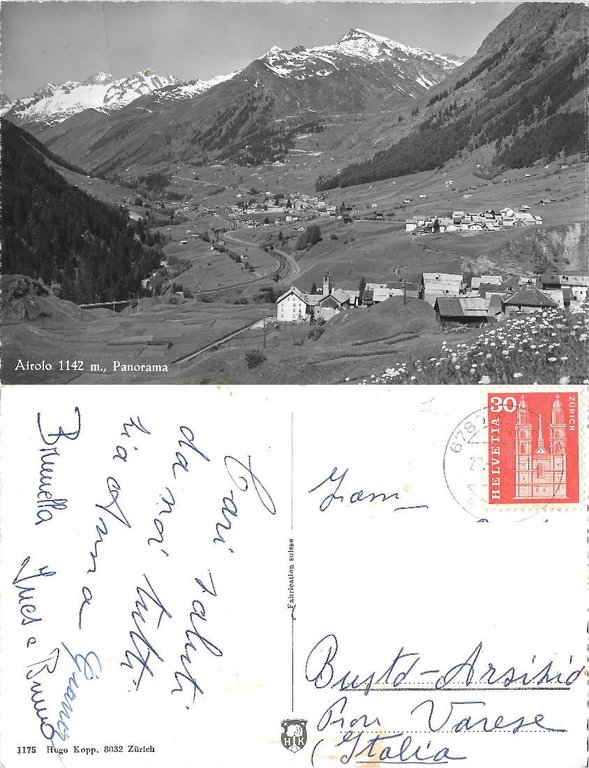 Airolo 1142 m., Panorama
Cari saluti
da noi tutti
zia Anna
Brunella
Ines e Bruno
30
HELVETIA
ZÜRICH
678
Fam
Busto-Arsizio
Prov Varese
(Italia
Fabrication suisse
HK
1175 Hugo Kopp, 8032 Zürich